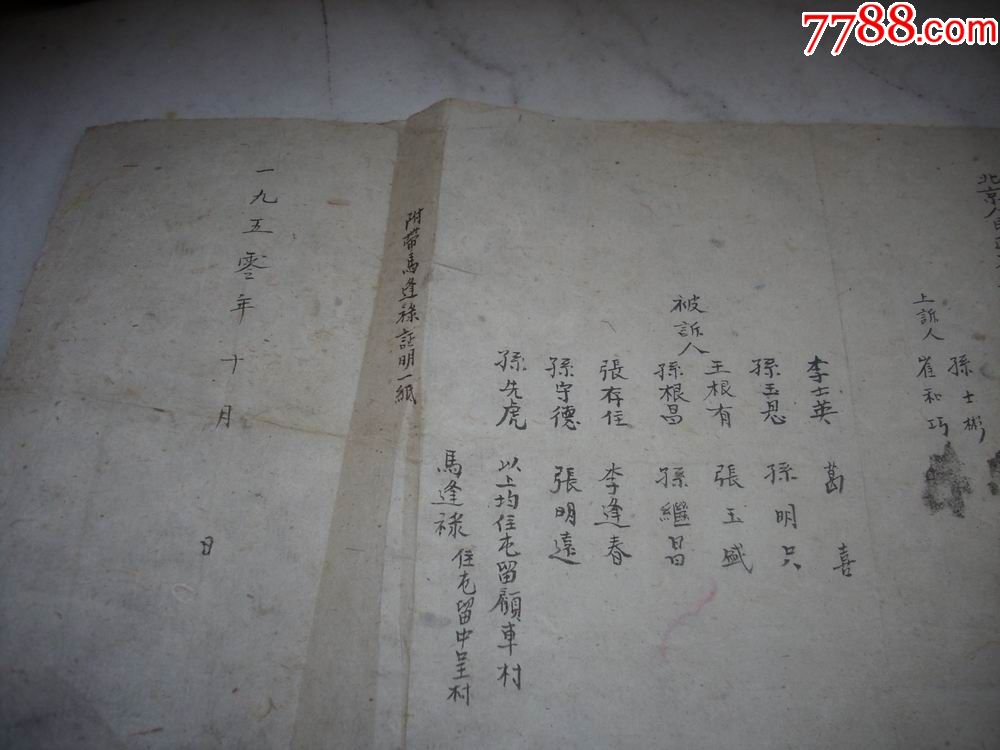 7788.com
北京人民
上訴人
孫士彬
崔和巧
被訴人
李士英 葛喜
孫玉恩 孫明只
王根有 張玉盛
孫根昌 孫繼昌
張存住 李逢春
孫守德 張明遠
孫先虎 以上均住屯留顧車村
馬逢祿 住屯留中呈村
附帶馬逢祿証明一紙
一九五零年 十月 日